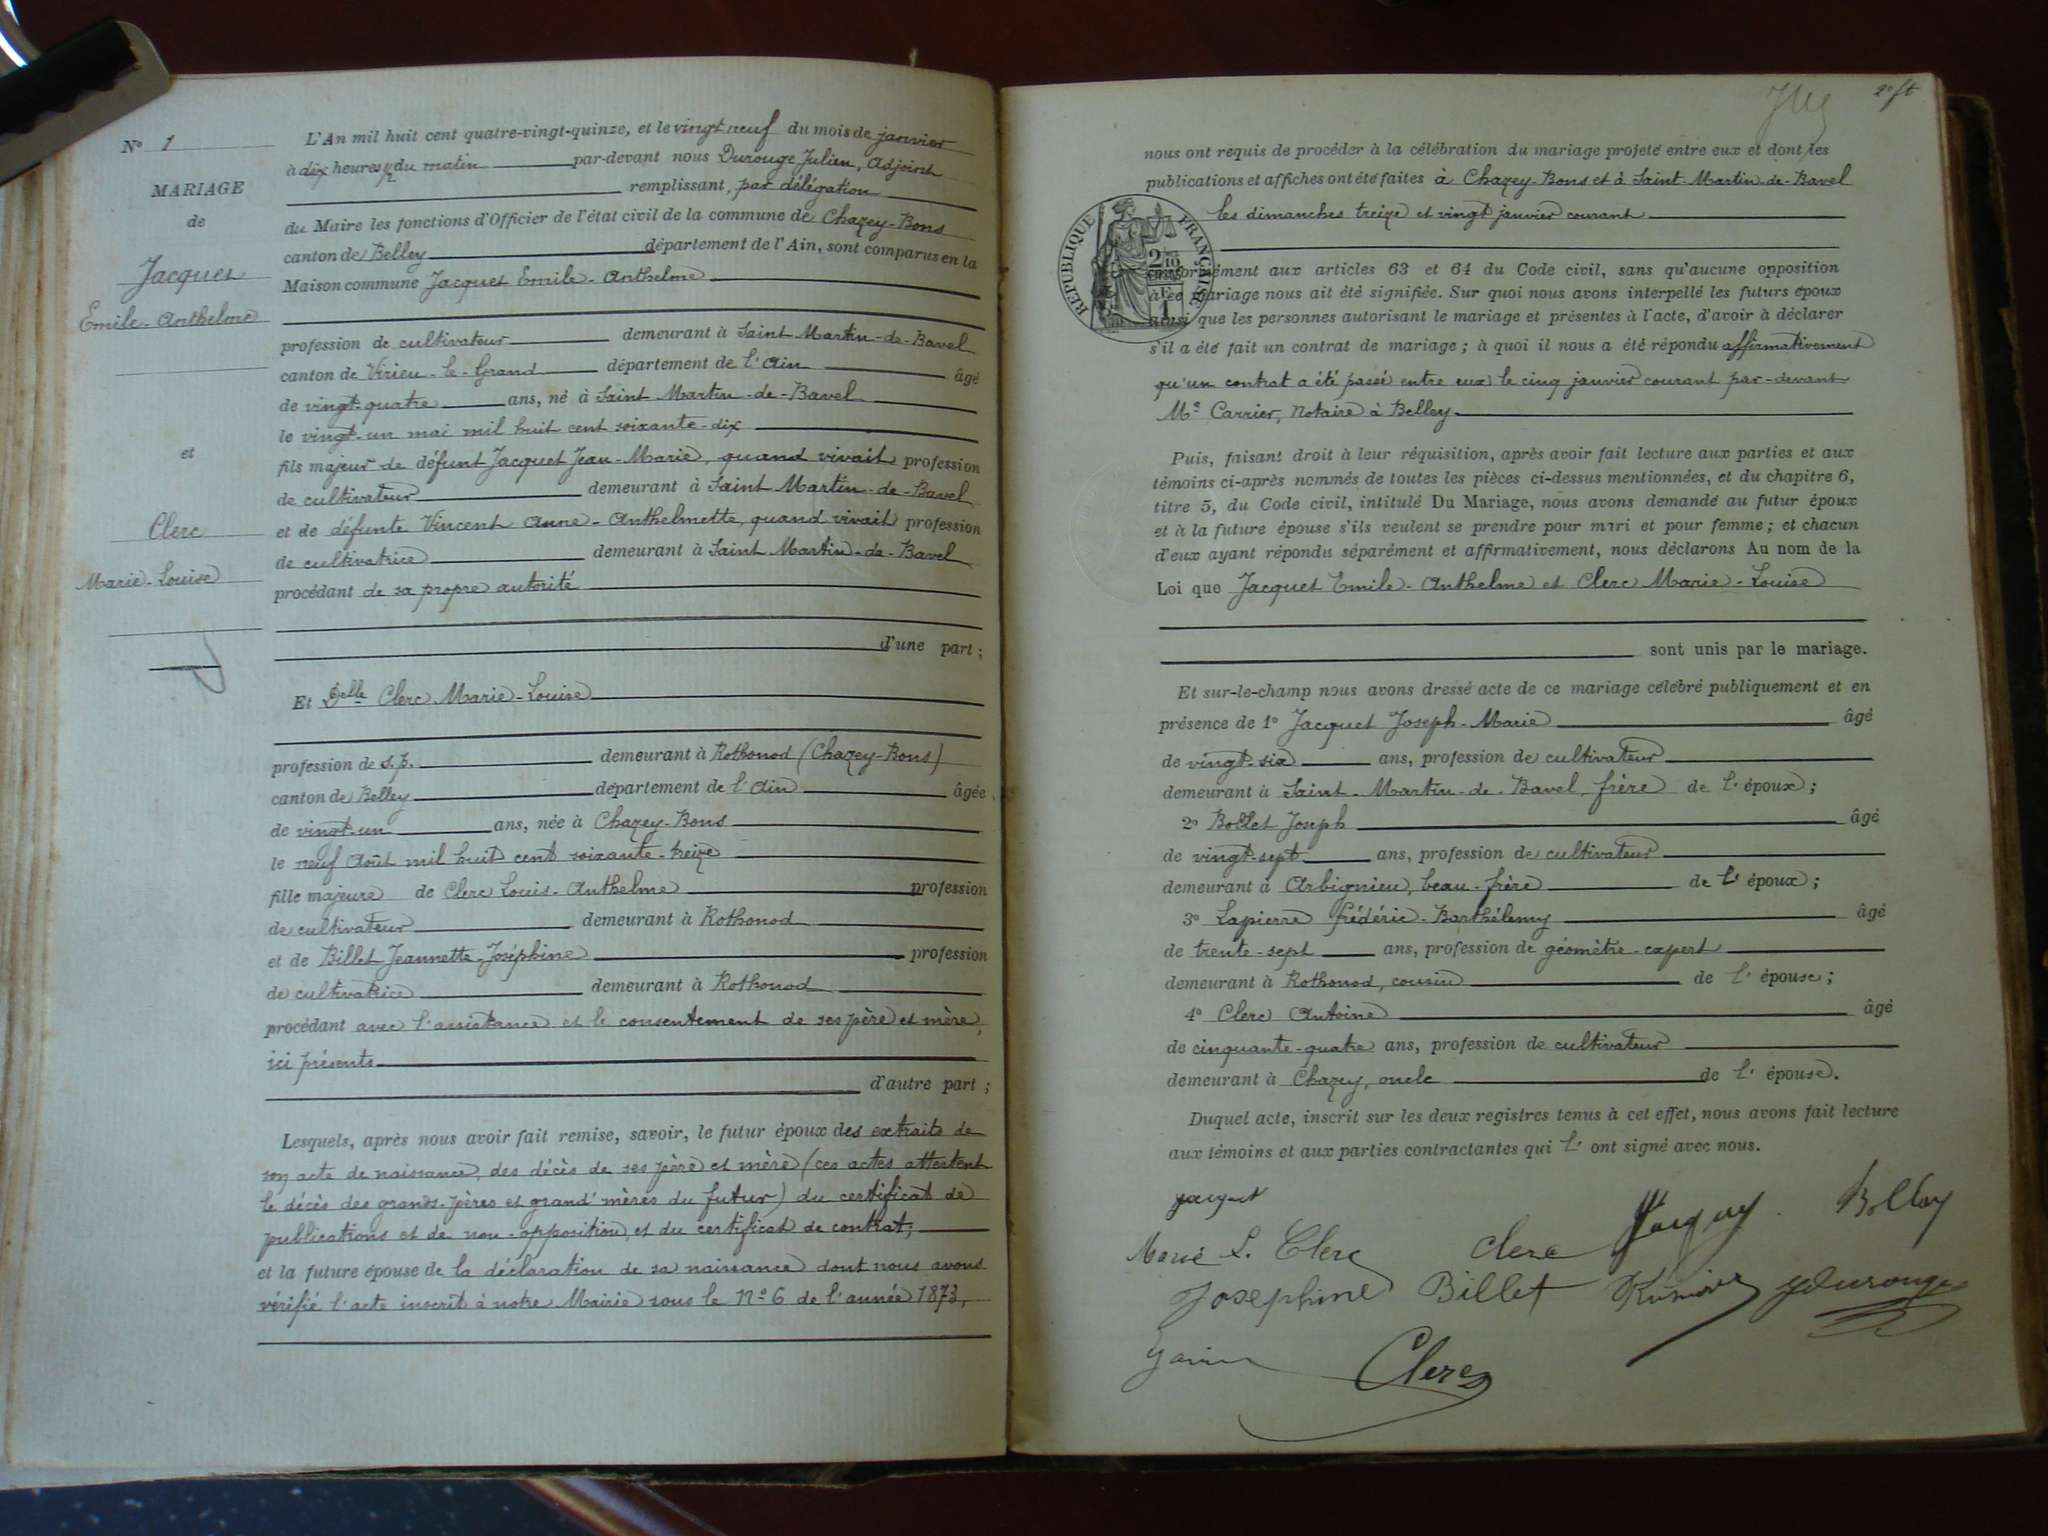 N° 1
MARIAGE
de
Jacquet
Emile-Anthelme
et
Clerc
Marie-Louise
L'An mil huit cent quatre-vingt-quinze, et le vingt neuf du mois de janvier
à dix heures ½ du matin par-devant nous Durouge Julien, Adjoint
remplissant, par délégation
du Maire les fonctions d'Officier de l'état civil de la commune de Chazey-Bons
canton de Belley département de l'Ain, sont comparus en la
Maison commune Jacquet Emile-Anthelme
profession de cultivateur demeurant à Saint Martin-de-Bavel
canton de Virieu-le-Grand département de l'Ain âgé
de vingt-quatre ans, né à Saint Martin-de-Bavel
le vingt-un mai mil huit cent soixante-dix
fils majeur de défunt Jacquet Jean-Marie, quand vivait profession
de cultivateur demeurant à Saint Martin-de-Bavel
et de défunte Vincent Anne-Anthelmette, quand vivait profession
de cultivatrice demeurant à Saint Martin-de-Bavel
procédant de sa propre autorité
d'une part ;
Et Delle Clerc Marie-Louise
profession de s.p. demeurant à Rothonod (Chazey-Bons)
canton de Belley département de l'Ain âgée
de vingt-un ans, née à Chazey-Bons
le neuf Août mil huit cent soixante-treize
fille majeure de Clerc Louis-Anthelme profession
de cultivateur demeurant à Rothonod
et de Billet Jeannette-Joséphine profession
de cultivatrice demeurant à Rothonod
procédant avec l'assistance et le consentement de ses père et mère,
ici présents
d'autre part ;
Lesquels, après nous avoir fait remise, savoir, le futur époux des extraits de
son acte de naissance, des décès de ses père et mère (ces actes attestent
le décès des grands-pères et grand'mères du futur) du certificat de
publications et de non-opposition, et du certificat de contrat;
et la future épouse de la déclaration de sa naissance dont nous avons
vérifié l'acte inscrit à notre Mairie sous le N° 6 de l'année 1873,
2e ft
nous ont requis de procéder à la célébration du mariage projeté entre eux et dont les
publications et affiches ont été faites à Chazey-Bons et à Saint-Martin-de-Bavel
les dimanches treize et vingt janvier courant
RÉPUBLIQUE FRANÇAISE
conformément aux articles 63 et 64 du Code civil, sans qu'aucune opposition
à ce mariage nous ait été signifiée. Sur quoi nous avons interpellé les futurs époux
ainsi que les personnes autorisant le mariage et présentes à l'acte, d'avoir à déclarer
s'il a été fait un contrat de mariage ; à quoi il nous a été répondu affirmativement
qu'un contrat a été passé entre eux le cinq janvier courant par-devant
Me Carrier, Notaire à Belley.
Puis, faisant droit à leur réquisition, après avoir fait lecture aux parties et aux
témoins ci-après nommés de toutes les pièces ci-dessus mentionnées, et du chapitre 6,
titre 5, du Code civil, intitulé Du Mariage, nous avons demandé au futur époux
et à la future épouse s'ils veulent se prendre pour mari et pour femme ; et chacun
d'eux ayant répondu séparément et affirmativement, nous déclarons Au nom de la
Loi que Jacquet Emile-Anthelme et Clerc Marie-Louise
sont unis par le mariage.
Et sur-le-champ nous avons dressé acte de ce mariage célébré publiquement et en
présence de 1° Jacquet Joseph-Marie âgé
de vingt-six ans, profession de cultivateur
demeurant à Saint-Martin-de-Bavel, frère de l'époux ;
2° Bollet Joseph âgé
de vingt-sept ans, profession de cultivateur
demeurant à Arbignieu, beau-frère de l'époux ;
3° Lapierre Frédéric-Barthélemy âgé
de trente-sept ans, profession de géomètre-expert
demeurant à Rothonod, cousin de l'épouse ;
4° Clerc Antoine âgé
de cinquante-quatre ans, profession de cultivateur
demeurant à Chazey, oncle de l'épouse.
Duquel acte, inscrit sur les deux registres tenus à cet effet, nous avons fait lecture
aux témoins et aux parties contractantes qui l' ont signé avec nous.
Jacquet
Marie L. Clerc Clerc
Joséphine Billet JDurouge
Clerc